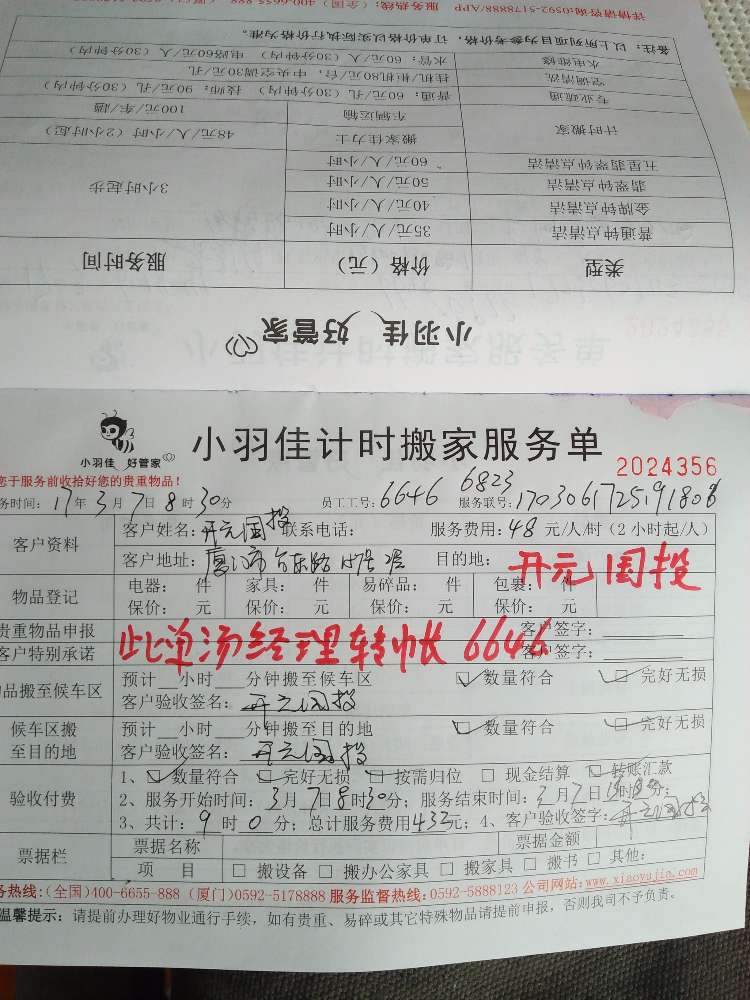 详情请咨询:0592-5178888/APP 服务热线:(全国)400-6655-888
备注:以上所列项目为参考价格,订单价格以实际执行价格为准。
水电维修 水管:60元/人(30分钟内) 电路60元/人(30分钟内)
空调清洗 挂机/柜机80元/台,中央空调30元/孔
专业疏通 普通:60元/孔(30分钟内) 技师:90元/孔(30分钟内)
计时搬家 车辆运输 100元/车/趟
搬家佳力士 48元/人/小时(2小时起)
五星翡翠钟点清洁 60元/人/小时
翡翠钟点清洁 50元/人/小时 3小时起步
金牌钟点清洁 40元/人/小时
普通钟点清洁 35元/人/小时
类型 价格(元) 服务时间
小羽佳 好管家
小羽佳 好管家
小羽佳计时搬家服务单
2024356
您于服务前收拾好您的贵重物品!
务时间:17年3月7日8时30分 员工工号:6646 6823 服务联号:
客户资料 客户姓名:开元国投 联系电话: 服务费用:48元/人/时(2小时起/人)
客户地址: 目的地:开元国投
物品登记 电器: 件 家具: 件 易碎品: 件 包裹: 件
保价: 元 保价: 元 保价: 元 保价: 元
贵重物品申报 客户签字:
此单汤经理转帐 6646
客户特别承诺 客户签字:
品搬至候车区 预计__小时__分钟搬至候车区 ☑数量符合 ☑完好无损
客户验收签名:开元国投
候车区搬至目的地 预计__小时__分钟搬至目的地 ☑数量符合 ☑完好无损
客户验收签名:开元国投
验收付费 1、☑数量符合 ☑完好无损 ☑按需归位 □现金结算 ☑转账汇款
2、服务开始时间:3月7日8时30分;服务结束时间:3月7日
3、共计:9时0分;总计服务费用432元;4、客户验收签字:开元国投
票据栏 票据名称 票据金额
项目 □搬设备 □搬办公家具 □搬家具 □搬书 □其他:
务热线:(全国)400-6655-888 (厦门)0592-5178888 服务监督热线:0592-5888123 公司网站:www.xiaoyujia.com
温馨提示:请提前办理好物业通行手续,如有贵重、易碎或其它特殊物品请提前申报,否则我司不予负责。